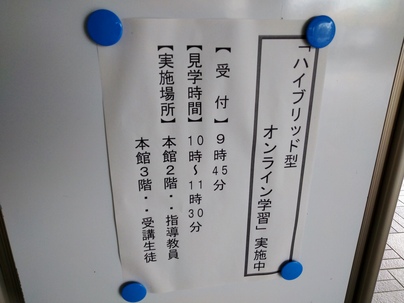 「ハイブリッド型
オンライン学習」実施中
【受付】9時45分
【見学時間】10時～11時30分
【実施場所】本館2階・・指導教員
本館3階・・受講生徒